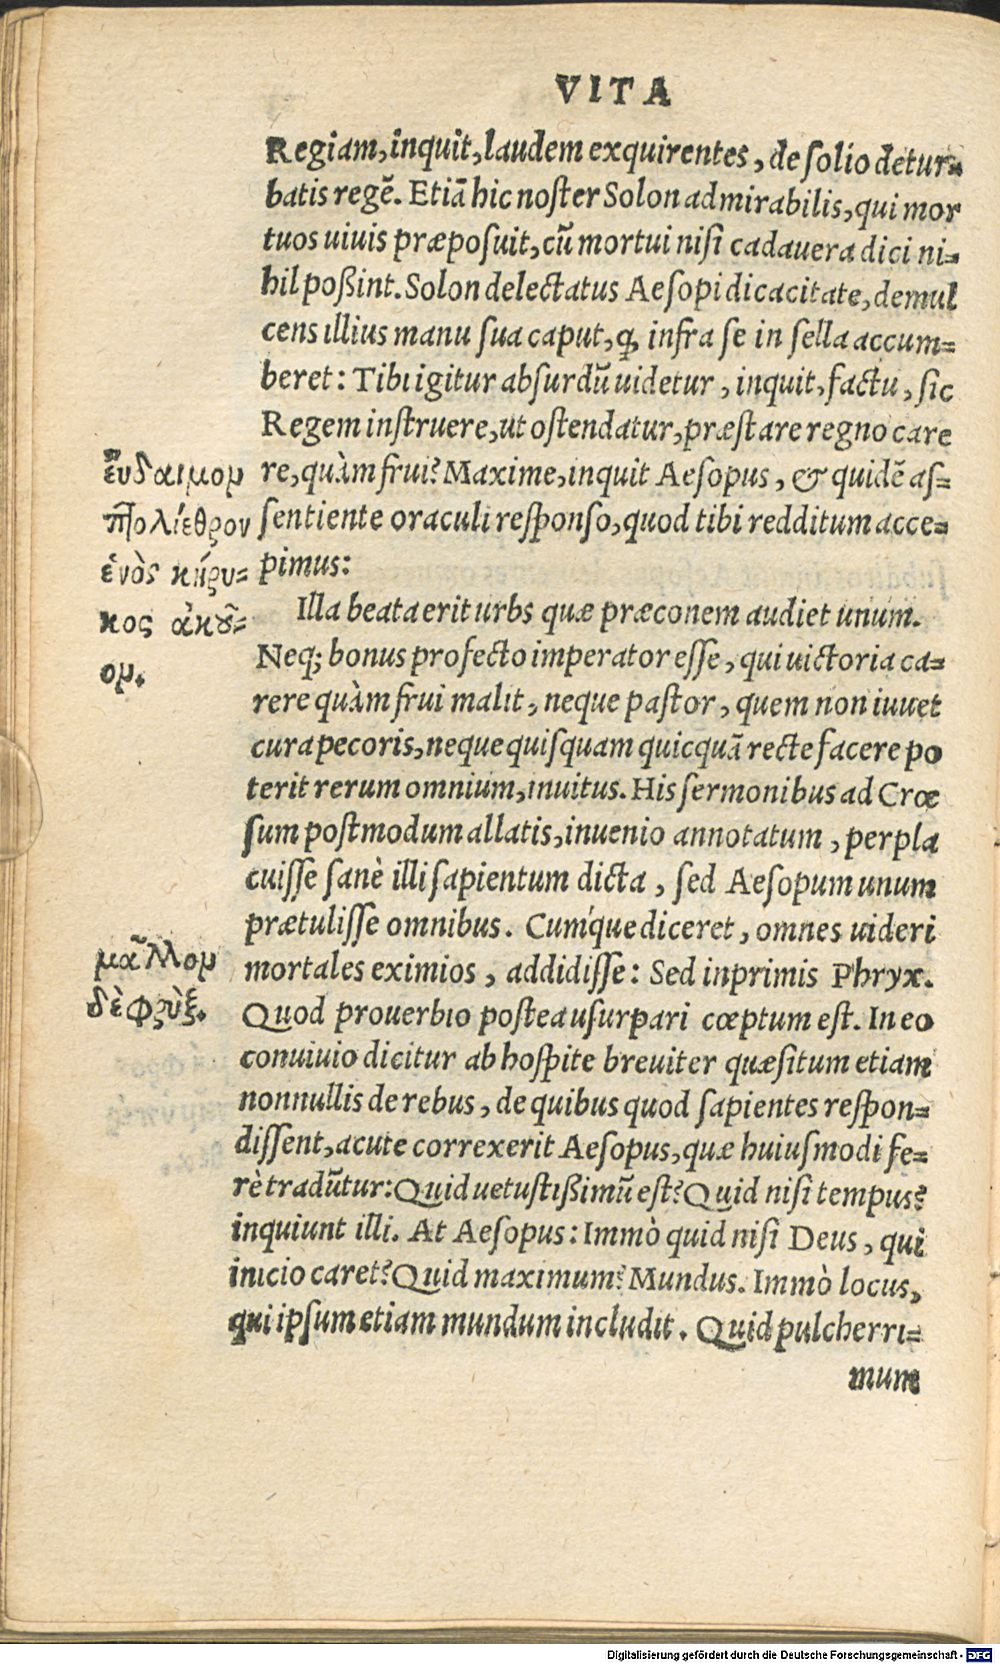 VITA
Regiam, inquit, laudem exquirentes, de solio detur-
batis regē. Etiā hic noster Solon admirabilis, qui mor
tuos uiuis præposuit, cū mortui nisi cadauera dici ni-
hil poßint. Solon delectatus Aesopi dicacitate, demul
cens illius manu sua caput, ꝙ infra se in sella accum-
beret: Tibi igitur absurdū uidetur, inquit, factu, sic
Regem instruere, ut ostendatur, præstare regno care
re, quàm frui? Maxime, inquit Aesopus, & quidē as-
sentiente oraculi responso, quod tibi redditum acce-
pimus:
Illa beata erit urbs quæ præconem audiet unum.
Neq; bonus profecto imperator esse, qui uictoria ca-
rere quàm frui malit, neque pastor, quem non iuuet
cura pecoris, neque quisquam quicquā recte facere po
terit rerum omnium, inuitus. His sermonibus ad Crœ
sum postmodum allatis, inuenio annotatum, perpla
cuisse sanè illi sapientum dicta, sed Aesopum unum
prætulisse omnibus. Cumq́ue diceret, omnes uideri
mortales eximios, addidisse: Sed inprimis Phryx.
Quod prouerbio postea usurpari cœptum est. In eo
conuiuio dicitur ab hospite breuiter quæsitum etiam
nonnullis de rebus, de quibus quod sapientes respon-
dissent, acute correxerit Aesopus, quæ huiusmodi fe-
rè tradūtur: Quid uetustißimū est? Quid nisi tempus?
inquiunt illi. At Aesopus: Immò quid nisi Deus, qui
inicio caret? Quid maximum? Mundus. Immò locus,
qui ipsum etiam mundum includit. Quid pulcherri-
mum
εὔδαιμον
πτολίεθρον
ἑνὸς κήρυ-
κος ἀκοῦ-
ον.
μᾶλλον
δὲ φρὺξ.
Digitalisierung gefördert durch die Deutsche Forschungsgemeinschaft - DFG